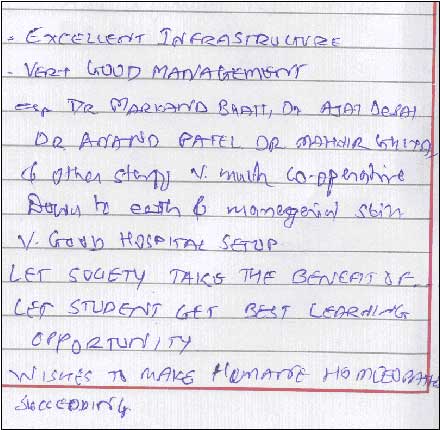 - EXCELLENT INFRASTRUCTURE
- VERY GOOD MANAGEMENT
esp DR MARKAND BHATT, DR AJAY DESAI
DR ANAND PATEL DR MAHAVIR
& other staff v. much co-operative
Down to earth & managerial skill
V. GOOD HOSPITAL SETUP
LET SOCIETY TAKE THE BENEFIT OF
LET STUDENT GET BEST LEARNING
OPPORTUNITY
WISHES TO MAKE HOMOEOPATHIC
SUCCEEDING